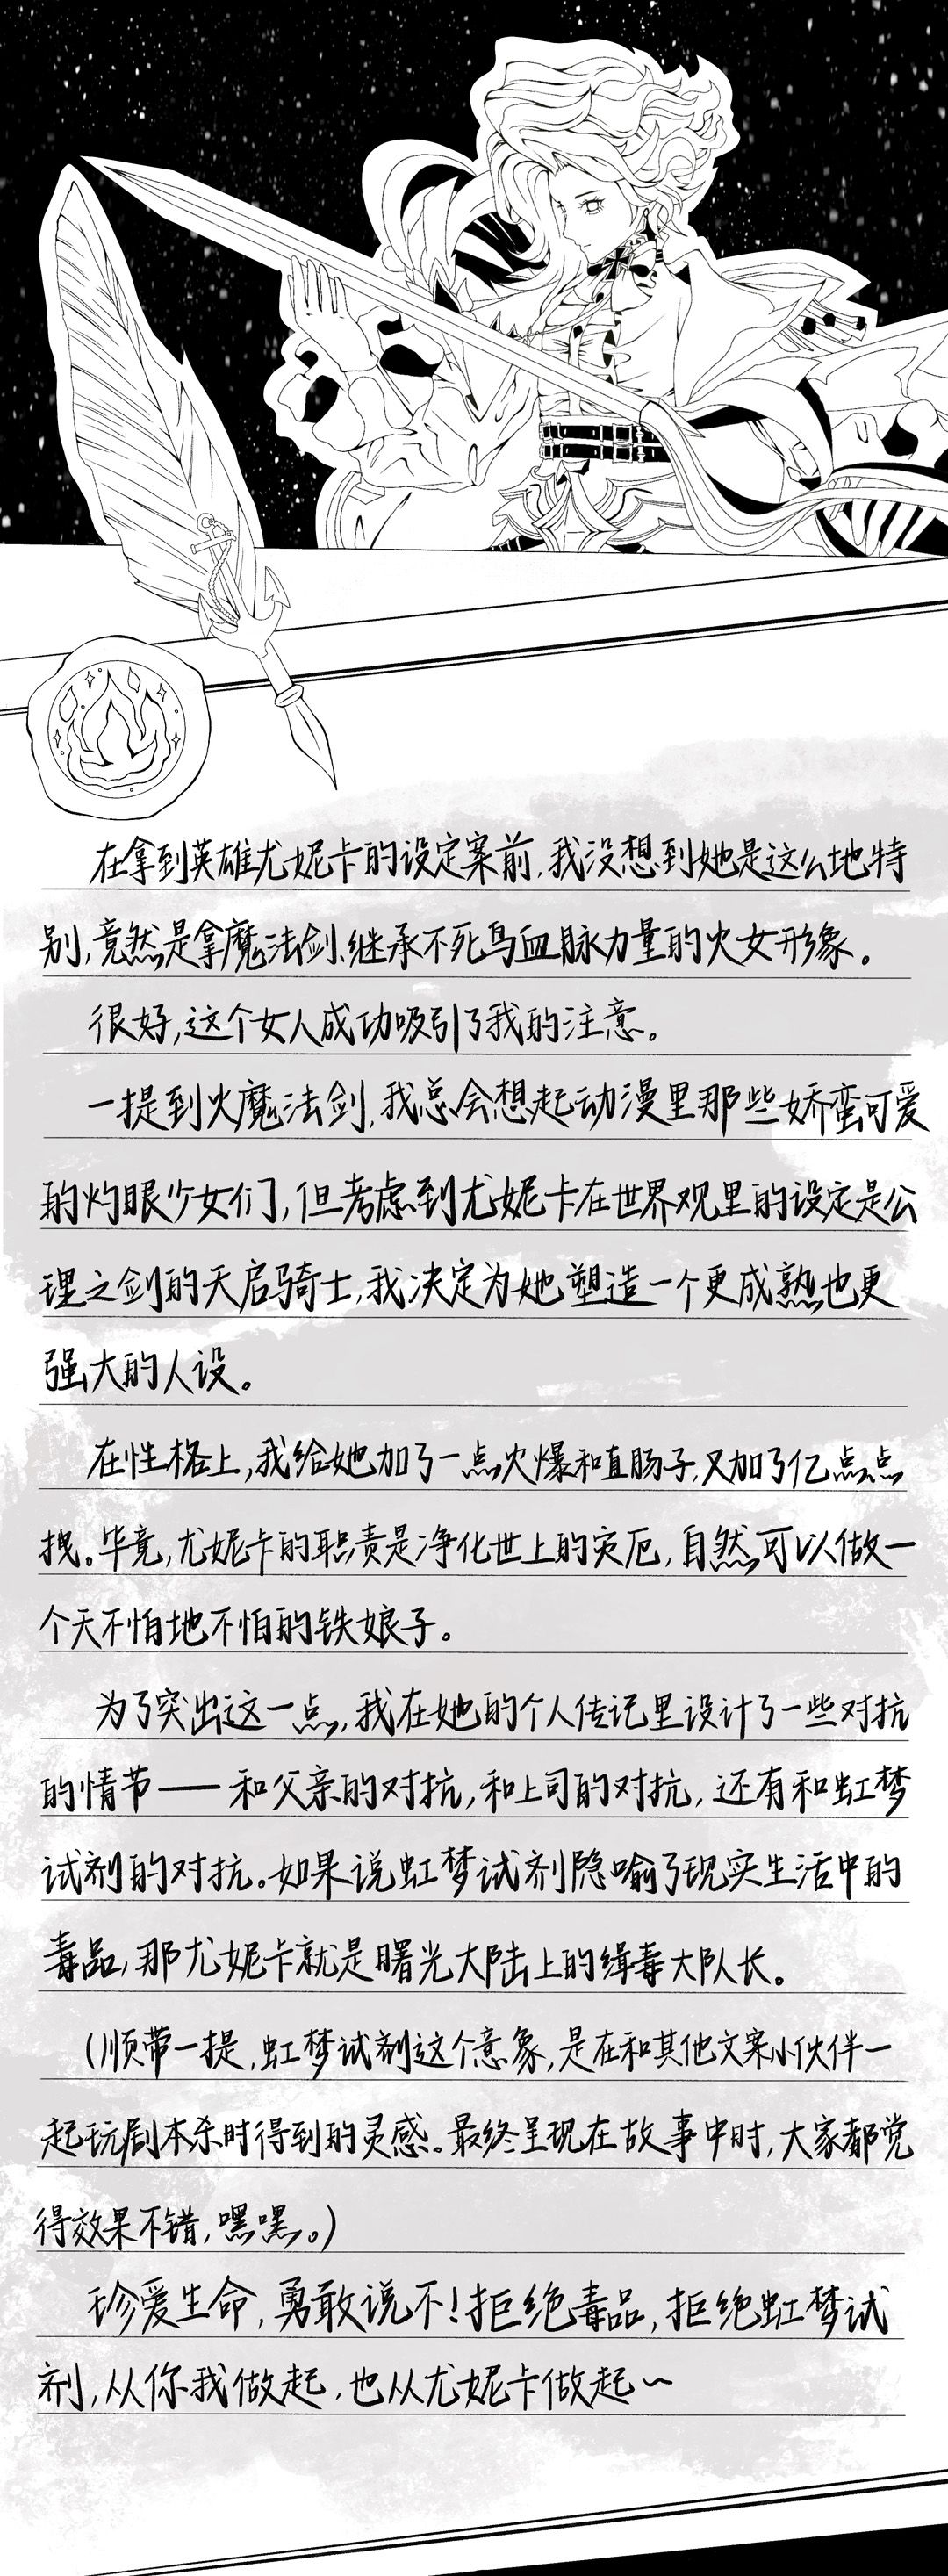 在拿到英雄尤妮卡的设定案前，我没想到她是这么地特
别，竟然是拿魔法剑、继承不死鸟血脉力量的火女形象。
很好，这个女人成功吸引了我的注意。
一提到火魔法剑，我总会想起动漫里那些娇蛮可爱
的灼眼少女们，但考虑到尤妮卡在世界观里的设定是公
理之剑的天启骑士，我决定为她塑造一个更成熟也更
强大的人设。
在性格上，我给她加了一点火爆和直肠子，又加了亿点点
拽。毕竟，尤妮卡的职责是净化世上的灾厄，自然可以做一
个天不怕地不怕的铁娘子。
为了突出这一点，我在她的个人传记里设计了一些对抗
的情节——和父亲的对抗，和上司的对抗，还有和虹梦
试剂的对抗。如果说虹梦试剂隐喻了现实生活中的
毒品，那尤妮卡就是曙光大陆上的缉毒大队长。
（顺带一提，虹梦试剂这个意象，是在和其他文案小伙伴一
起玩剧本杀时得到的灵感。最终呈现在故事中时，大家都觉
得效果不错，嘿嘿。）
珍爱生命，勇敢说不！拒绝毒品，拒绝虹梦试
剂，从你我做起，也从尤妮卡做起～